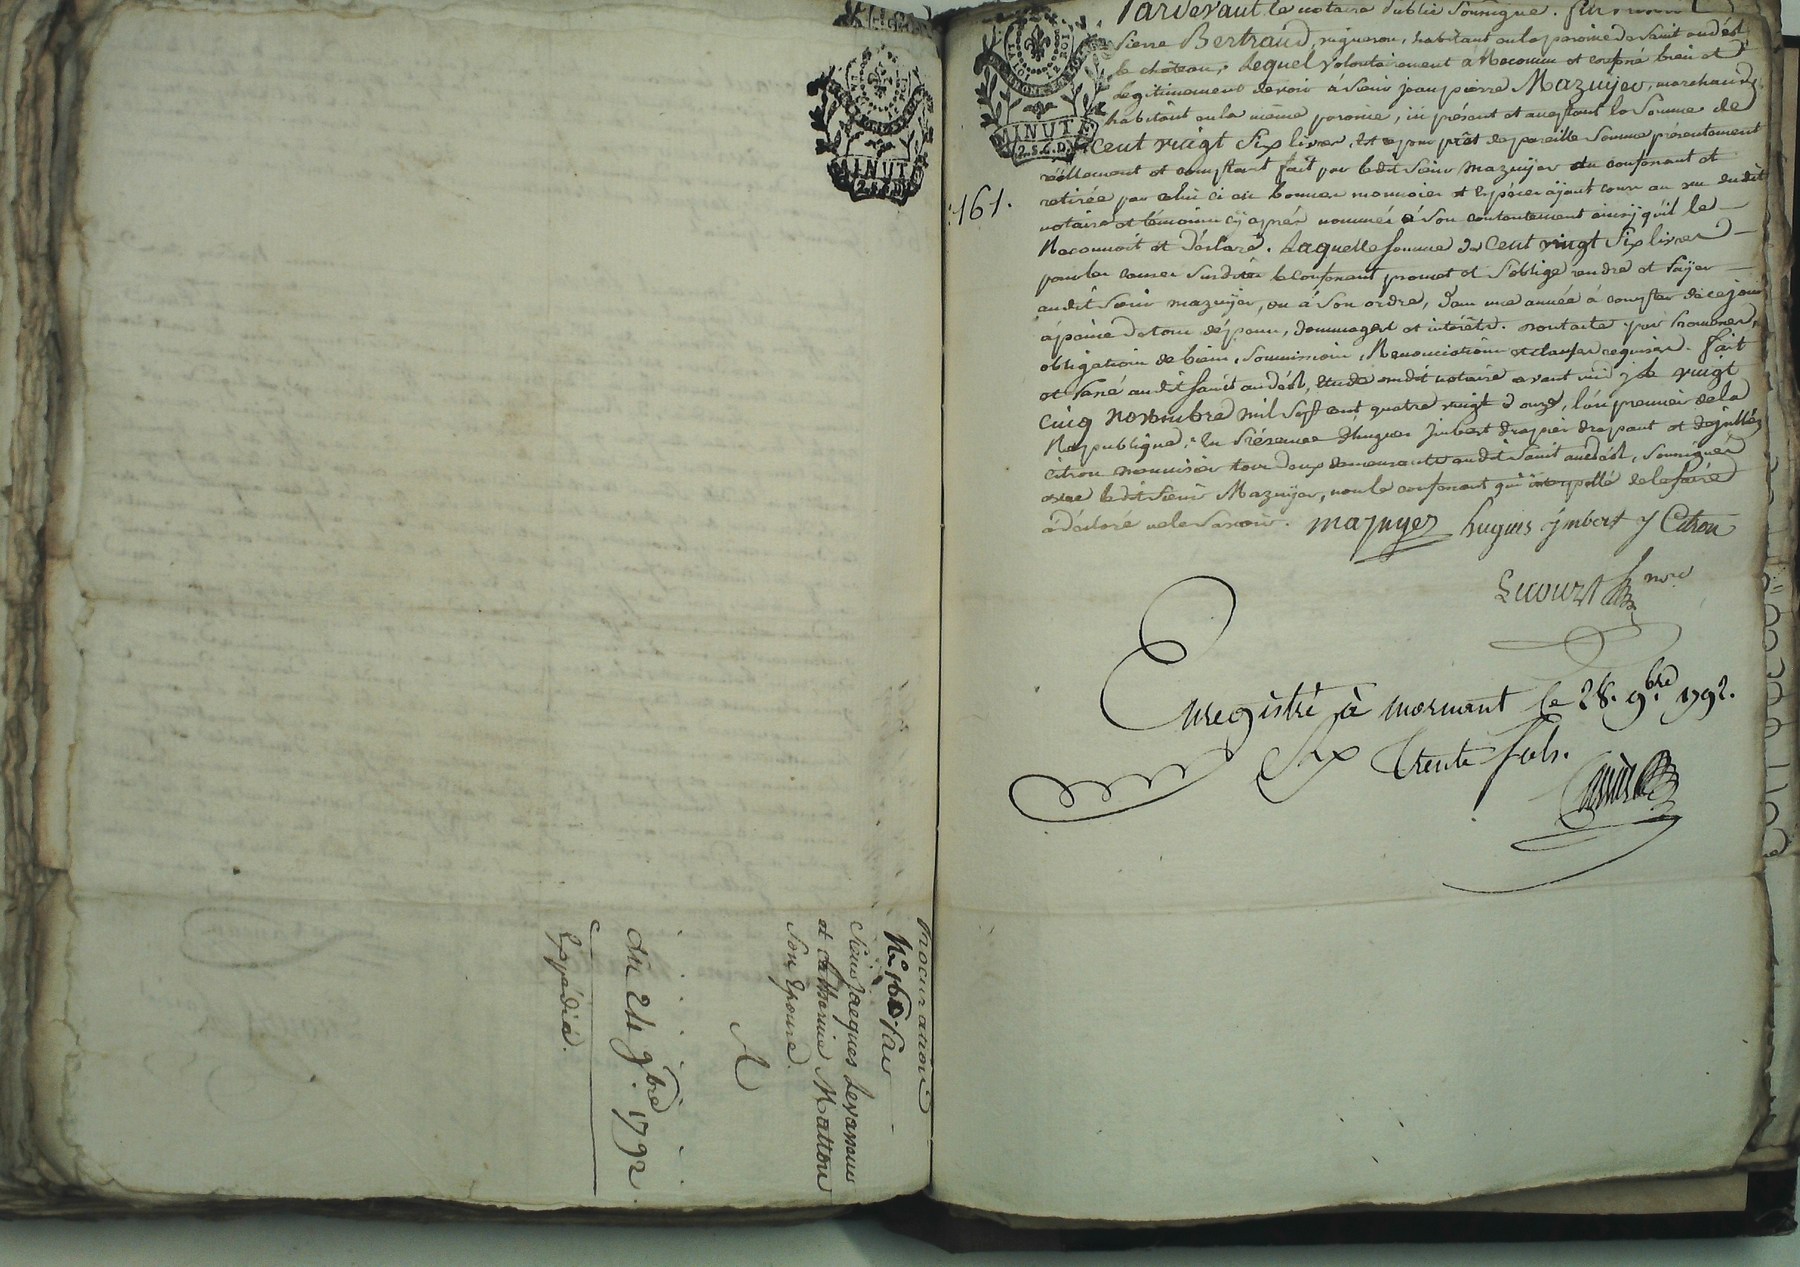 MINUT
2.S.6.D.
procuration
N.º 160. par
Sieur jacques Levasseur
et catherine Matton
son Epouse.
A
du 24 9.bre 1792.
Expédiée.
LA LOI
LE ROI
MINUTE
2.S.6.D.
161.
Pardevant le notaire public soussigné. fut
pierre Bertraud, vigneron, habitant en la paroisse de saint andéol
le château; Lequel volontairement a Reconnu et confessé bien et
Legitimement devoir à sieur jean pierre Mazuyer, marchand,
habitant en la même paroisse, ici présent et acceptant la somme de
cent vingt six livres, Et ce pour prêt de pareille somme presentement
réellement et comptant fait par ledit sieur mazuyer au confessant et
retirée par celui ci en bonnes monnoies et Espèces ayant cours au vu dudit
notaire et témoins cy après nommés à son contentement ainsy qu'il le
Reconnoit et déclare. Laquelle somme de cent vingt six livres
pour les causes susdites le confessant promet et s'oblige rendre et payer
audit sieur mazuyer, ou à son ordre, dans une année à compter de ce jour
à peine de tous dépens, dommages et intérêts. par promesses,
obligation de biens, soumissions, Renonciations et clauses requises. fait
et passé audit saint andéol, Etude dudit notaire avant midi ce vingt
cinq novembre mil sept cent quatre vingt douze, l'an premier de la
Republique, En Présence d'hugues jmbert drapier drapant et de jullien
citron menuisier tous deux demeurants audit saint andéol, soussignés
avec ledit sieur Mazuyer, non le confessant qui interpellé de le faire
a déclaré ne le savoir. mazuyer hugues jmbert J Citron
Lecourt nre
Enregistré à mornant le 28. 9.bre 1792.
trente sols.